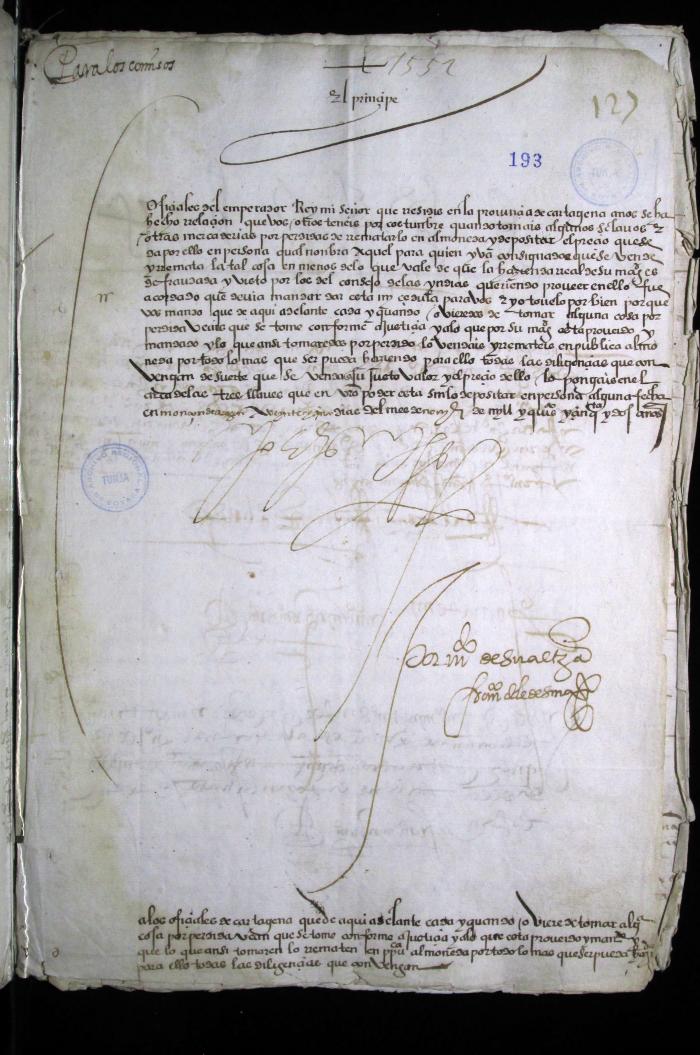 Para los comisos
1552
El principe
127
193
ARCHIVO REGIONAL DE BOYACA
TUNJA
Ofiçiales del emperador Rey mi señor que rresidis en la provinçia de cartagena a nos se ha
hecho rrelaçion que vosotros teneis por costumbre quando tomais algunos esclavos e
otras mercaderias por perdidas de rematarlo en almoneda y depositar el preçio que se
da por ello en persona qual nonbra aquel para quien van consignadas que se vende
y rremata la tal cosa en menos de lo que vale de que la hazienda real de su mag es
defraudada y visto por los del consejo de las yndias queriendo proveer en ello fue
acordado que devia mandar dar esta mi çedula para vos e yo tovelo por bien por que
vos mando que de aqui adelante cada y quando ovieredes de tomar alguna cosa por
perdida veais que se tome conforme a justiçia y a lo que por su mag esta proveydo y
mandado y lo que ansi tomaredes por perdido lo vendais y rremateis en publica almo
neda por todo lo mas que ser pueda haziendo para ello todas las diligençias que con
vengan de suerte que se venda a su justo valor y el preçio dello lo pongais en el
arca de las tres llaves que en vro poder esta sin lo depositar en persona alguna fecha
en monçon de aragon a veynte y dias del mes de de mill y quis y çinqta y dos años
Yo el prinçipe
TUNJA
Por mdo de su alteza
franco de ledesma
a los ofiçiales de cartagena que de aqui adelante cada y quando oviere de tomar alga
cosa por perdida vean que se tome conforme a justiçia y a lo que esta proveido y mando y
que lo que ansi tomaren lo rrematen en ppca almoneda por todo lo mas que ser pueda hazdo
para ello todas las diligençias que convengan